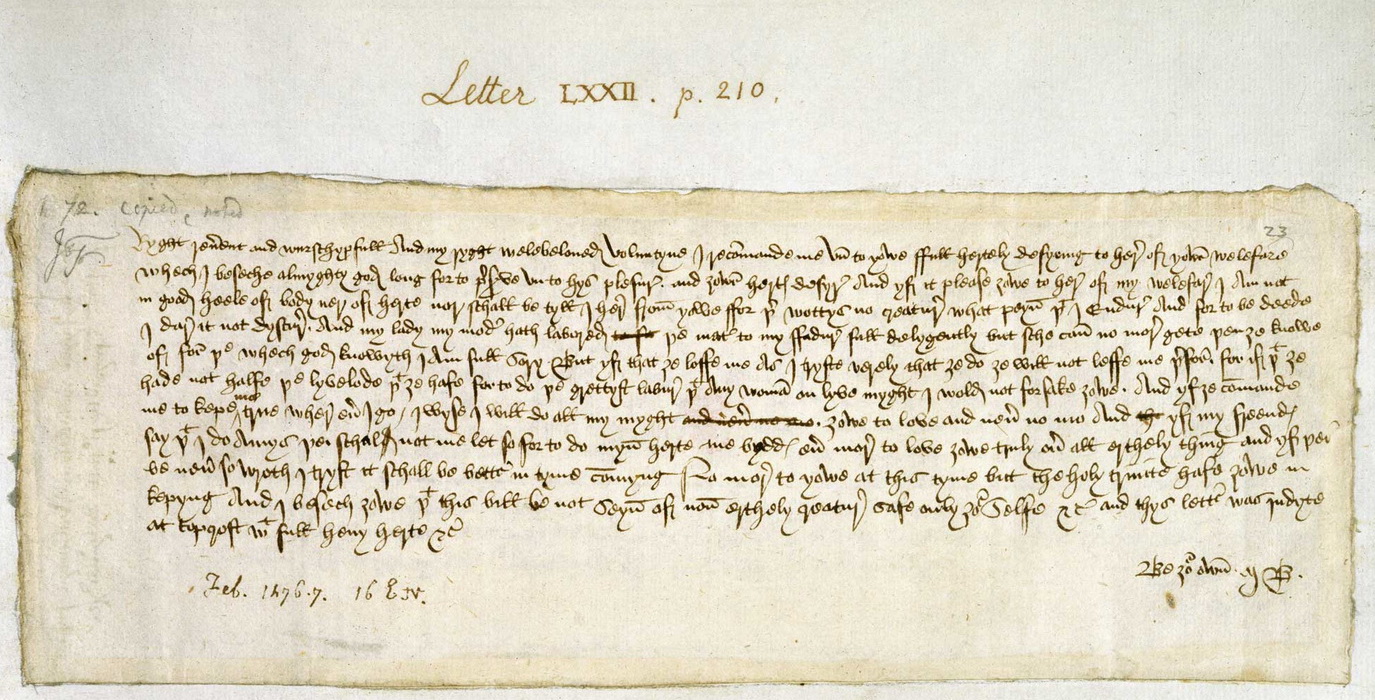 Letter LXXII. p. 210.
72. copied, noted
23
Ryght reverent and wurschypfull And my ryght welebeloved Voluntyne I recomande me un to yowe ffull hertely desyring to here of yowr welefare
whech I beseche almyghty god long for to preserve un to hys plesure and zowr hertys desyre And yf it please zowe to here of my welefar I Am not
in good heele of body ner of herte nor schall be tyll I here from yowe ffor þer wottys no creature what peyn þat I Endure And for to be deede
I dar it not dyscure. And my lady my moder hath labored þe mater to my ffadure full delygently but sche can no more gete þen ze knowe
of for þe whech god knowyth I Am full sory But yf that ze loffe me As I tryste verely that ze do ze will not leffe me þerfor. for if þat ze
hade not halfe þe lyvelode þat ze hafe for to do þe grettyst labure þat Any woman on lyve myght I wold not forsake zowe. And yf ze comande
me to kepe me true wherever I go, I wyse I will do all my myght and never no mo. zowe to love and never no mo And yf my freendys
say þat I do Amys þei schal not me let so for to do myn herte me byddys ever more to love zowe truly over all erthely thing and yf þei
be never so wroth I tryst it schall be better in tyme comyng No more to yowe at this tyme but the holy trinite hafe zowe in
kepyng And I besech zowe þat this bill be not seyn of non erthely creature safe only zour Selfe &c and thys letter was indyte
at topcroft wt full hevy herte &c
Be zour own. MB.
Feb. 1476-7. 16 E. IV.